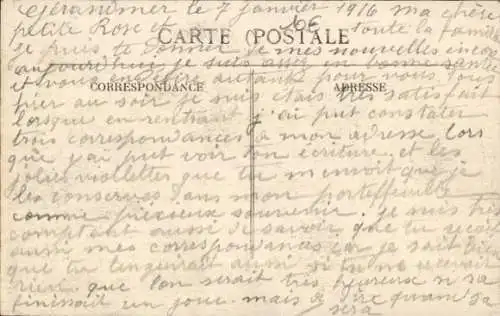 Gérardmer le 7 janvier 1916 ma chère
petite Rose et toute la famille
106
CARTE POSTALE
je puis te donner de mes nouvelles encore
aujourd'hui je suis assez en bonne santé
et vous en désire autant pour vous tous
CORRESPONDANCE
ADRESSE
hier au soir je suis étais très satisfait
lorsque en rentrant j'ai put constater
trois correspondances a mon adresse lors
que j'ai put voir ton écriture et les
jolies violettes que tu m'envoit que je
les conserves dans mon portefeuille
comme précieux souvenir. je suis très
comptent aussi de savoir que tu recoit
aussi mes correspondances car je sait bien
que tu languirait aussi si tu ne recevait
rien que l'on serait très heureux si sa
finissait un jour. mais a dire quand sa
sera